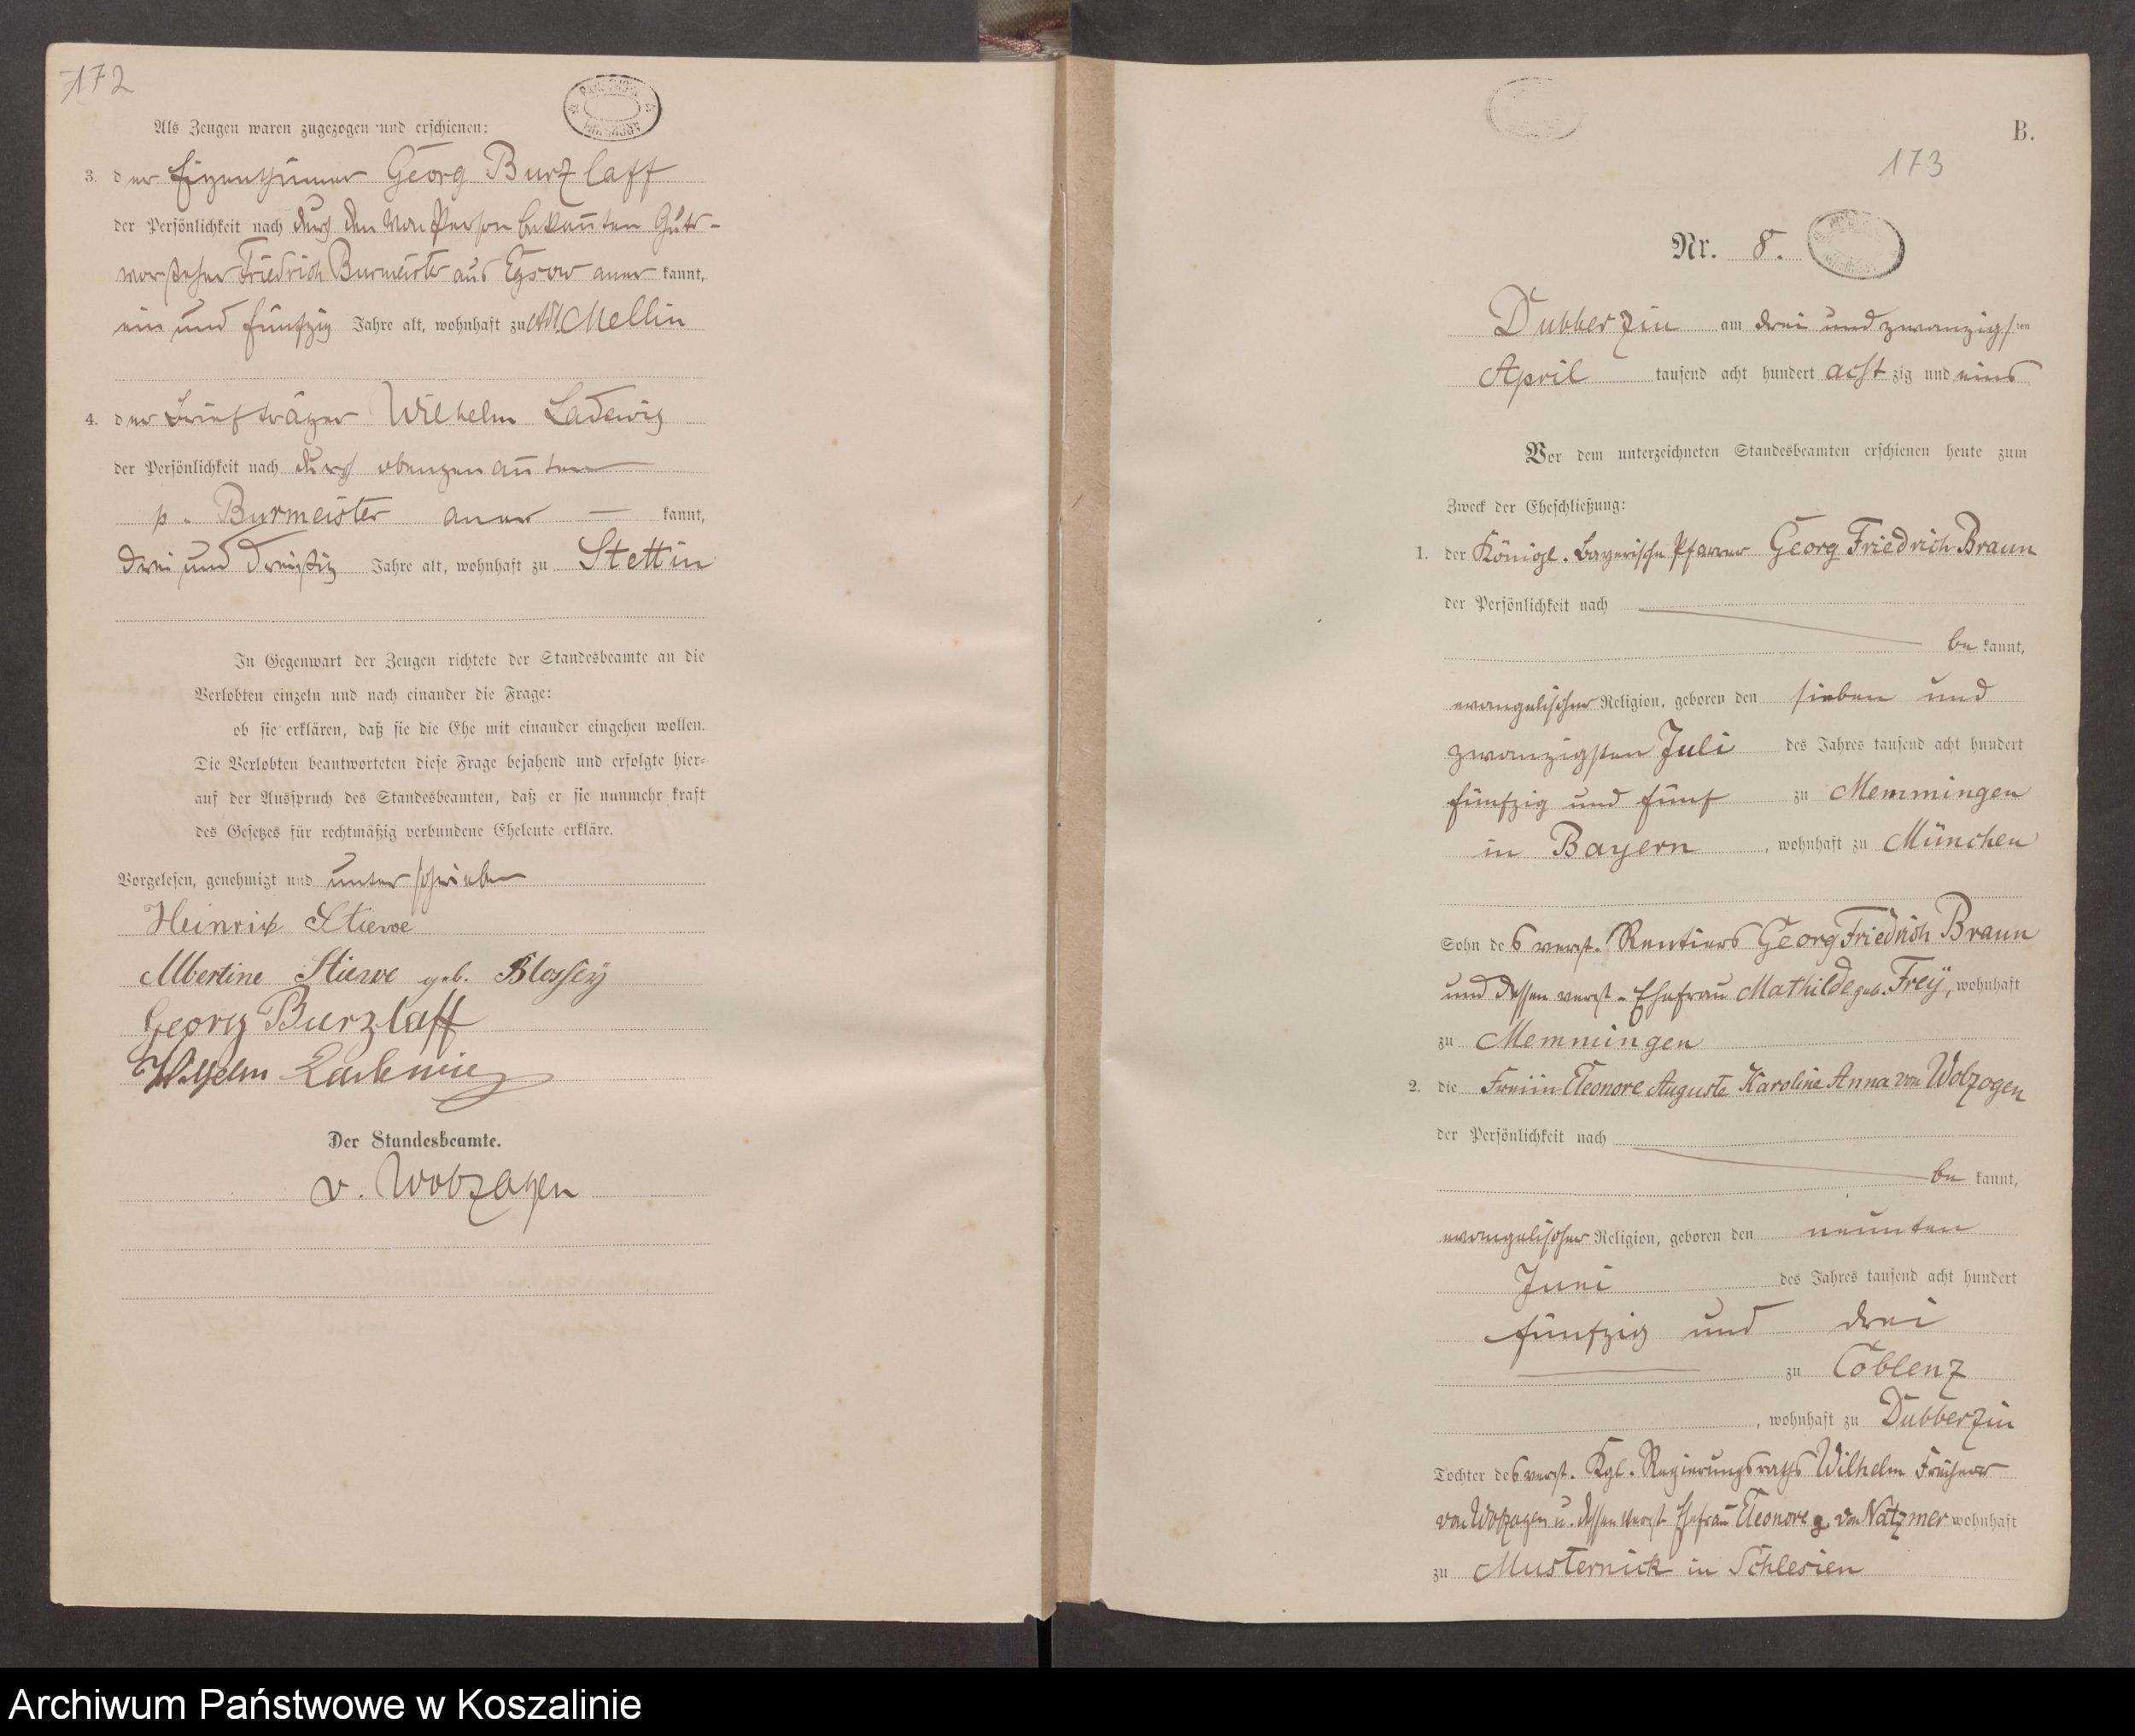 172
Als Zeugen waren zugezogen und erschienen:
3. der Eigenthümer Georg Burzlaff
der Persönlichkeit nach durch den von Person bekannten Guts-
vorsteher Friedrich Burmeister aus Egsow aner kannt,
ein und fünfzig Jahre alt, wohnhaft zu Adl. Mellin
4. der Briefträger Wilhelm Ladewig
der Persönlichkeit nach durch obengenannten
p. Burmeister aner — kannt,
drei und dreißig Jahre alt, wohnhaft zu Stettin
In Gegenwart der Zeugen richtete der Standesbeamte an die
Verlobten einzeln und nach einander die Frage:
ob sie erklären, daß sie die Ehe mit einander eingehen wollen.
Die Verlobten beantworteten diese Frage bejahend und erfolgte hier-
auf der Ausspruch des Standesbeamten, daß er sie nunmehr kraft
des Gesetzes für rechtmäßig verbundene Eheleute erkläre.
Vorgelesen, genehmigt und unterschrieben
Heinrich Stiewe
Albertine Stiewe geb. Blossey
Georg Burzlaff
Wilhelm Ladewig
Der Standesbeamte.
v. Wolzogen
B.
173
Nr. 8.
Dubberzin am drei und zwanzigsten
April tausend acht hundert achtzig und eins
Vor dem unterzeichneten Standesbeamten erschienen heute zum
Zweck der Eheschließung:
1. der Königl. Bayerische Pfarrer Georg Friedrich Braun
der Persönlichkeit nach
be kannt,
evangelischer Religion, geboren den sieben und
zwanzigsten Juli des Jahres tausend acht hundert
fünfzig und fünf zu Memmingen
in Bayern, wohnhaft zu München
Sohn des verst. Rentiers Georg Friedrich Braun
und dessen verst. Ehefrau Mathilde geb. Frey, wohnhaft
zu Memmingen
2. die Freiin Eleonore Auguste Karoline Anna von Wolzogen
der Persönlichkeit nach
be kannt,
evangelischer Religion, geboren den neunten
Juni des Jahres tausend acht hundert
fünfzig und drei
zu Coblenz
, wohnhaft zu Dubberzin
Tochter des verst. Kgl. Regierungsraths Wilhelm Freiherr
von Wolzogen u. dessen verst. Ehefrau Eleonore g. von Natzmer wohnhaft
zu Musternick in Schlesien
Archiwum Państwowe w Koszalinie